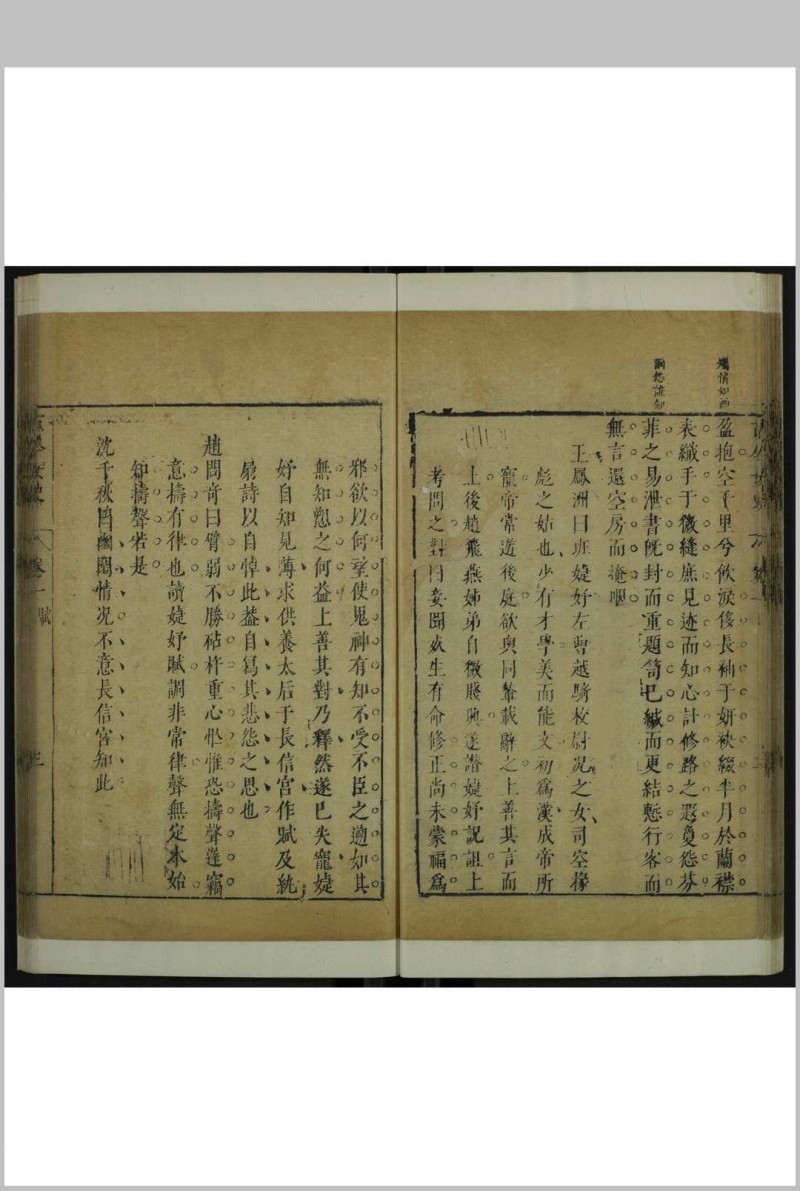 情如
怨誰知
盈抱空千里兮飲淚俟長袖于妍袂綴半月於蘭襟
表纖手于微縫庶見迹而知心計修路之遐夐怨芬
菲之易泄書旣封而重題笥已緘而更結慙行客而
無言還空房而掩咽
王鳳洲曰班婕妤左曹越騎校尉况之女司空掾
彪之姑也少有才學美而能文初爲漢成帝所
寵帝常遊後庭欲與同輦載辭之上善其言而
止後趙飛燕姊弟自微賤興遂譖婕妤祝詛上
考問之對曰妾聞死生有命修正尚未蒙福爲
邪欲以何望使鬼神有知不受不臣之愬如其
無知愬之何益上善其對乃釋然遂已失寵婕
妤自知見薄求供養太后于長信宮作賦及紈
扇詩以自悼此葢自爲其悲怨之思也
趙問奇曰臂弱不勝砧杵重心忙惟恐擣聲遲竊
意擣有律也讀婕妤賦調非常律聲無定本始
知擣聲若是
沈千秋曰幽閨情况不意長信宮知此
卷一 賦
三